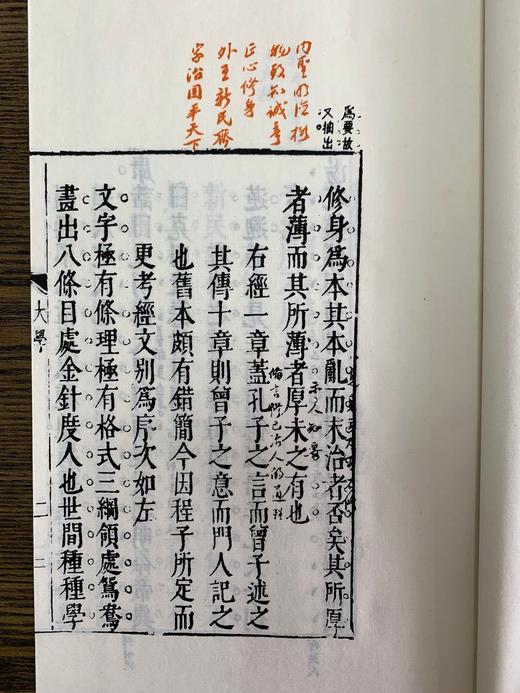 為要故
又抽出
内聖明德格
物致知誠意
正心修身
外王新民齊
家治国平天下
修身爲本其本亂而末治者否矣其所厚
者薄而其所薄者厚未之有也
示人知要
備言修己治人的道理
右經一章蓋孔子之言而曾子述之
其傳十章則曾子之意而門人記之
也舊本頗有錯簡今因程子所定而
更考經文別爲序次如左
文字極有條理極有格式三綱領處鴛鴦
盡出八條目處金針度人也世間種種學
大學
二
二